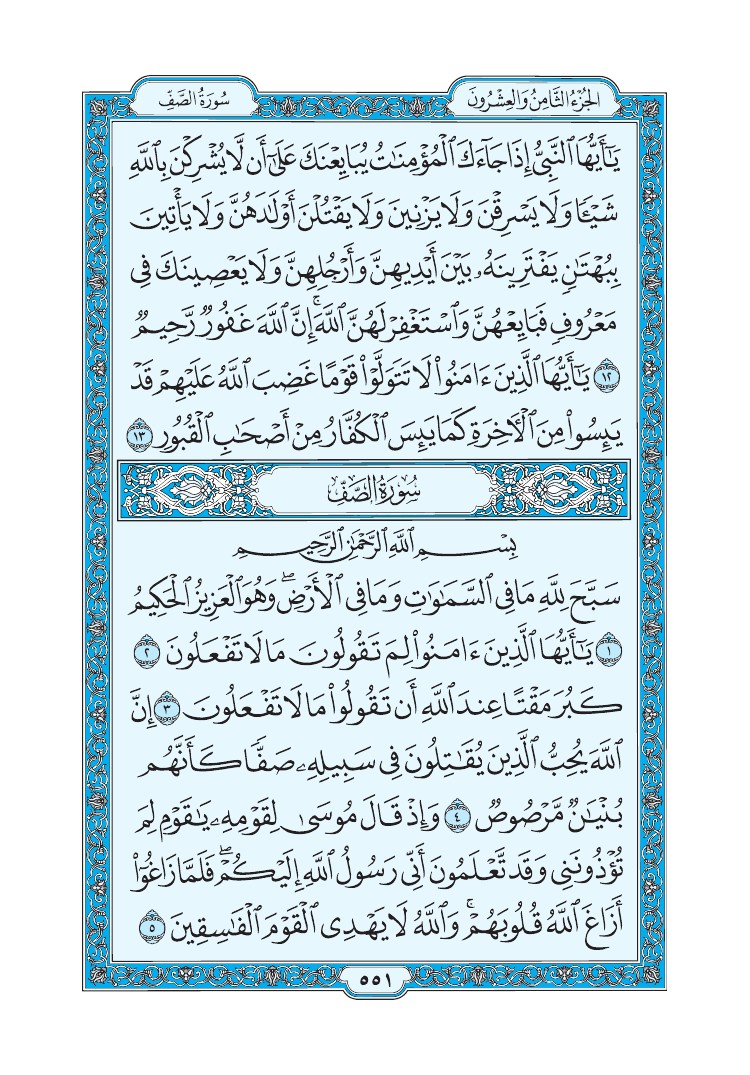 الجُزْءُ الثَّامِنُ وَالعِشْرُونَ
سُورَةُ الصَّفِّ
يَٰٓأَيُّهَا ٱلنَّبِيُّ إِذَا جَآءَكَ ٱلْمُؤْمِنَٰتُ يُبَايِعْنَكَ عَلَىٰٓ أَن لَّا يُشْرِكْنَ بِٱللَّهِ
شَيْـًٔا وَلَا يَسْرِقْنَ وَلَا يَزْنِينَ وَلَا يَقْتُلْنَ أَوْلَٰدَهُنَّ وَلَا يَأْتِينَ
بِبُهْتَٰنٍ يَفْتَرِينَهُۥ بَيْنَ أَيْدِيهِنَّ وَأَرْجُلِهِنَّ وَلَا يَعْصِينَكَ فِى
مَعْرُوفٍ فَبَايِعْهُنَّ وَٱسْتَغْفِرْ لَهُنَّ ٱللَّهَ ۚ إِنَّ ٱللَّهَ غَفُورٌ رَّحِيمٌ
١٢ يَٰٓأَيُّهَا ٱلَّذِينَ ءَامَنُوا۟ لَا تَتَوَلَّوْا۟ قَوْمًا غَضِبَ ٱللَّهُ عَلَيْهِمْ قَدْ
يَئِسُوا۟ مِنَ ٱلْأٓخِرَةِ كَمَا يَئِسَ ٱلْكُفَّارُ مِنْ أَصْحَٰبِ ٱلْقُبُورِ ١٣
سُورَةُ الصَّفِّ
بِسْمِ ٱللَّهِ ٱلرَّحْمَٰنِ ٱلرَّحِيمِ
سَبَّحَ لِلَّهِ مَا فِى ٱلسَّمَٰوَٰتِ وَمَا فِى ٱلْأَرْضِ ۖ وَهُوَ ٱلْعَزِيزُ ٱلْحَكِيمُ
١ يَٰٓأَيُّهَا ٱلَّذِينَ ءَامَنُوا۟ لِمَ تَقُولُونَ مَا لَا تَفْعَلُونَ ٢
كَبُرَ مَقْتًا عِندَ ٱللَّهِ أَن تَقُولُوا۟ مَا لَا تَفْعَلُونَ ٣ إِنَّ
ٱللَّهَ يُحِبُّ ٱلَّذِينَ يُقَٰتِلُونَ فِى سَبِيلِهِۦ صَفًّا كَأَنَّهُم
بُنْيَٰنٌ مَّرْصُوصٌ ٤ وَإِذْ قَالَ مُوسَىٰ لِقَوْمِهِۦ يَٰقَوْمِ لِمَ
تُؤْذُونَنِى وَقَد تَّعْلَمُونَ أَنِّى رَسُولُ ٱللَّهِ إِلَيْكُمْ ۖ فَلَمَّا زَاغُوٓا۟
أَزَاغَ ٱللَّهُ قُلُوبَهُمْ ۚ وَٱللَّهُ لَا يَهْدِى ٱلْقَوْمَ ٱلْفَٰسِقِينَ ٥
٥٥١